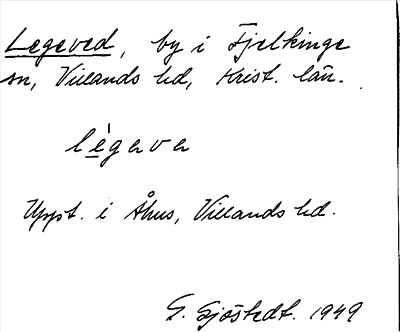 Legeved, by i Fjelkinge
sn, Villands hd, Krist. län.
lègəvə
Uppt. i Åhus, Villands hd.
G. Sjöstedt. 1949